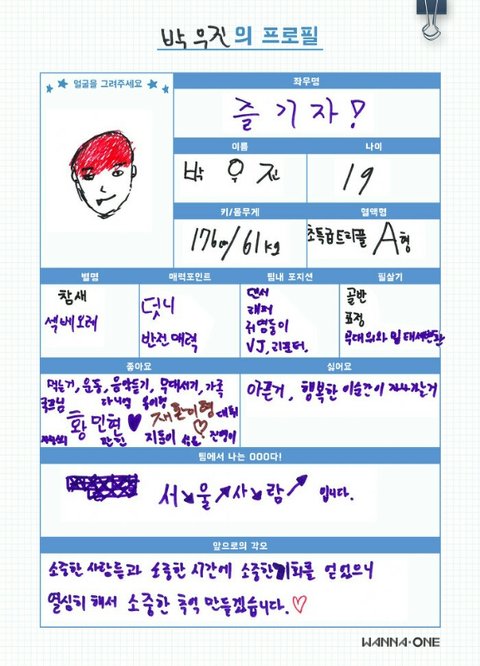 박우진의 프로필
얼굴을 그려주세요
좌우명
즐기자!
이름
나이
박우진
19
키/몸무게
혈액형
176cm/61kg
초특급트리플 A형
별명
매력포인트
팀내 포지션
필살기
참새
섹베오레
덧니
반전매력
댄서
래퍼
귀염둥이
VJ, 리포터.
골반
표정
무대 위와 밑 태세변환
좋아요
싫어요
먹는거, 운동, 음악듣기, 무대서기, 가족
다니엘
황민현♥
재환이형♡
대휘
지훈이
성운
관린이
아픈거, 행복한 이순간이 지나가는거
팀에서 나는 OOO다!
서↘울↗사↘람↗ 입니다.
앞으로의 각오
소중한 사람들과 소중한 시간에 소중한 기회를 얻었으니
열심히 해서 소중한 추억 만들겠습니다.♡
WANNA·ONE